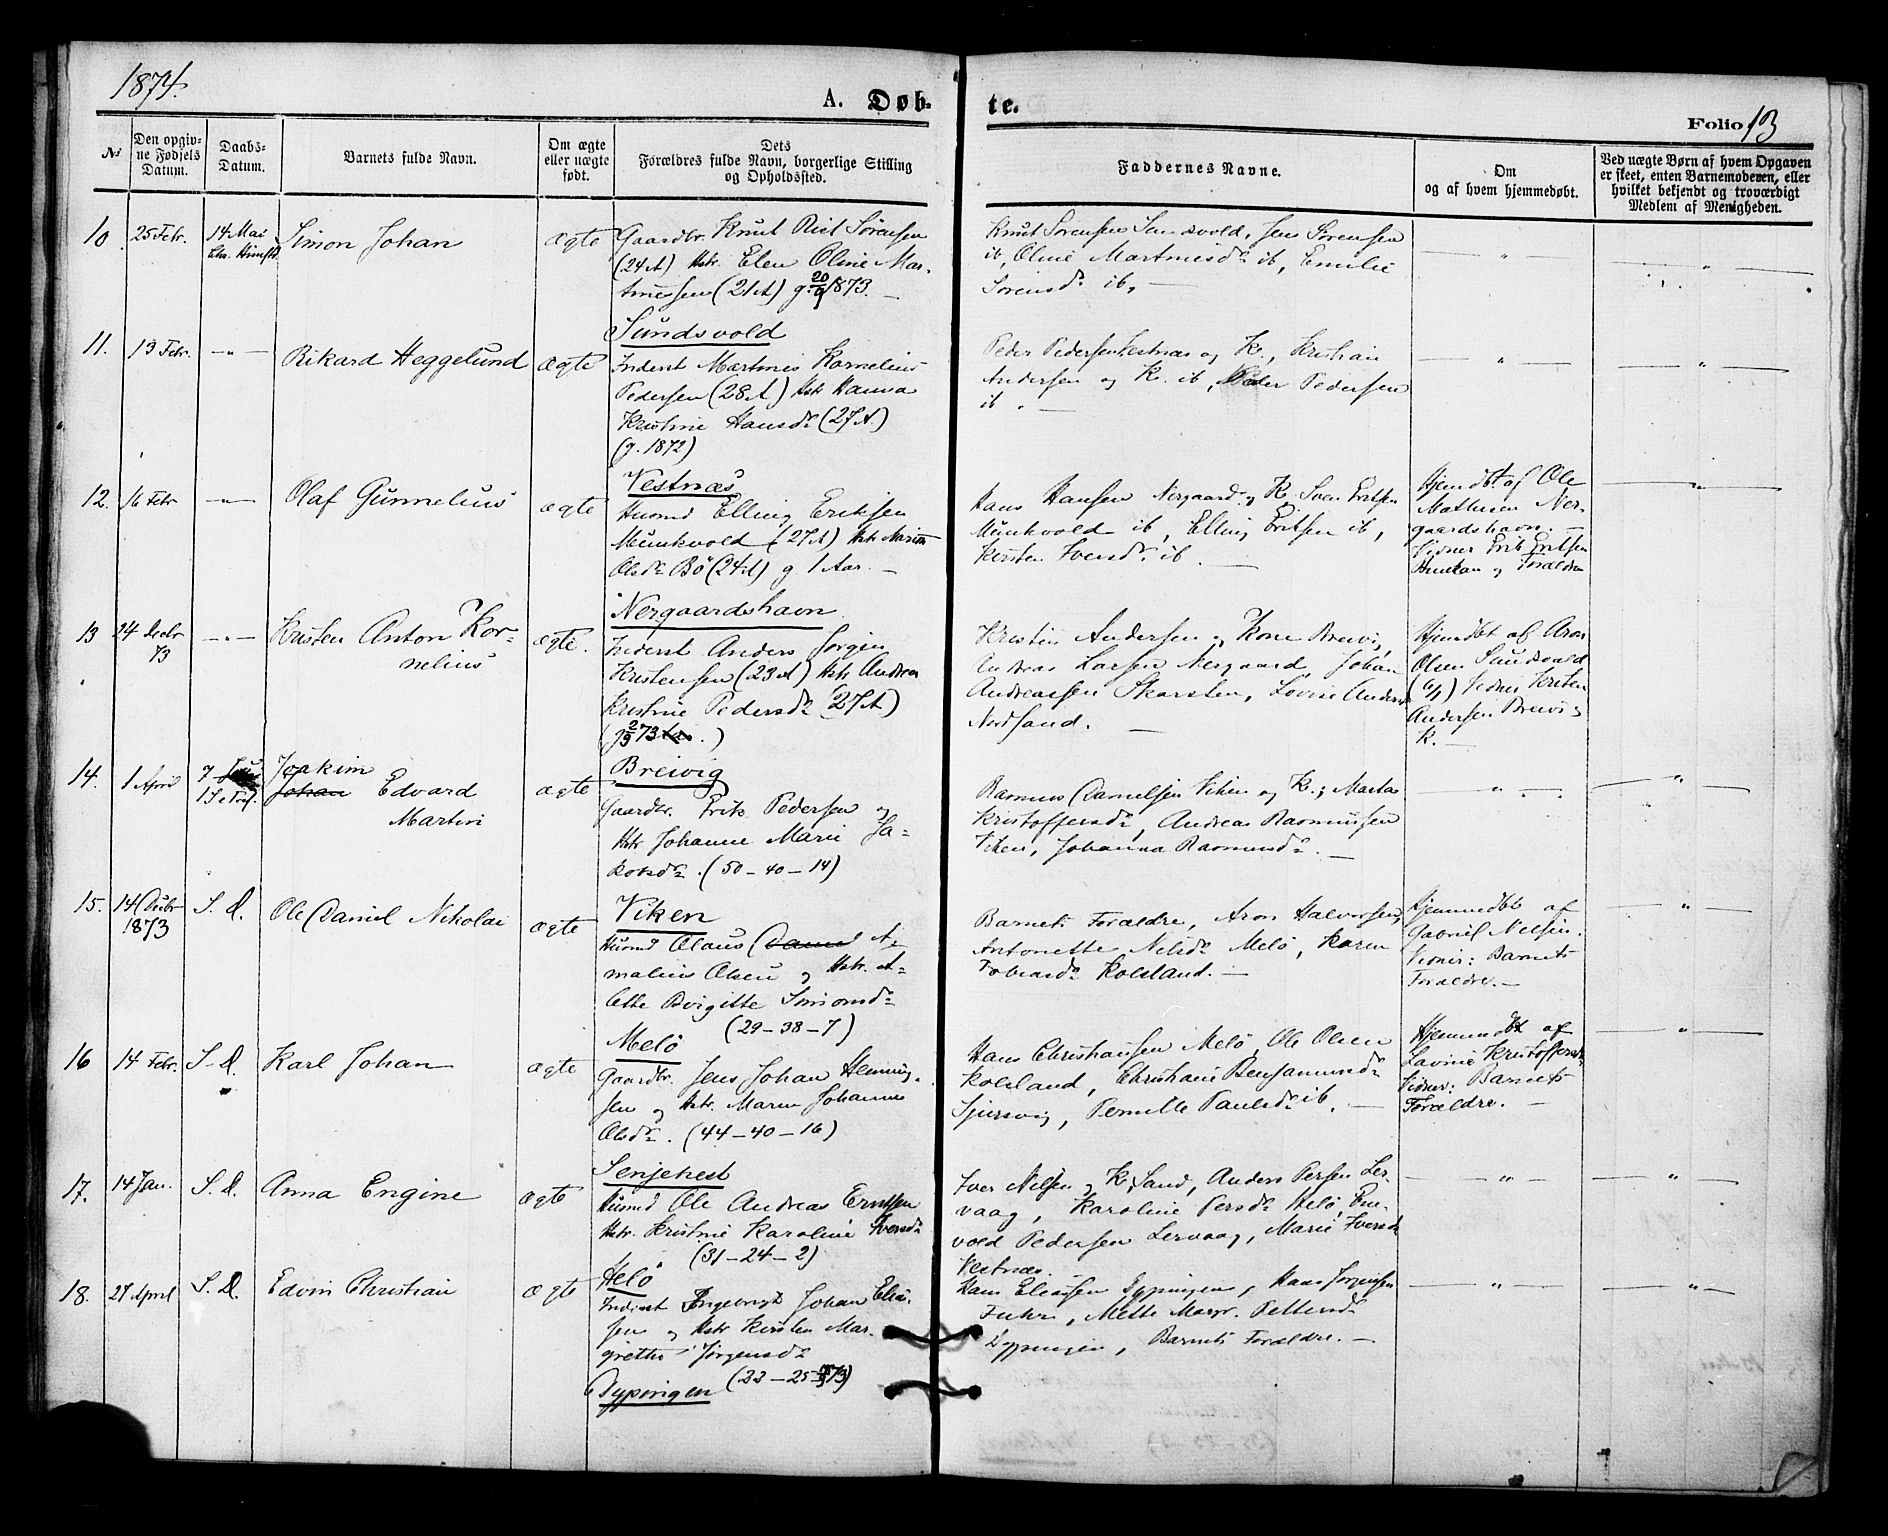 1874.
A. Døb-
te.
Folio 13
№
Den opgiv-
ne Fødsels
Datum.
Daabs-
Datum.
Barnets fulde Navn.
Om ægte
eller uægte
født.
Dets
Forældres fulde Navn, borgerlige Stilling
og Opholdssted.
Faddernes Navne.
Om
og af hvem hjemmedøbt.
Ved uægte Børn af hvem Opgaven
er skeet, enten Barnemoderen, eller
hvilket bekjendt og troværdigt
Medlem af Menigheden.
10
25 Febr.
14 Mai
Chr. Himf
Simon Johan
ægte
Gaardbr. Knut Rist Sørensen
(24 A) Hstr. Elen Oline Mar-
tinessen (21 A) g. 20/9 1873. —
Sundsvold
Knut Sørensen Sundsvold, Jens Sørensen
ib, Oline Martinesdr ib, Emilie
Sørensdr ib, —
— „ —
— „ —
11.
13 Febr.
— „ —
Rikard Heggelund
ægte
Inderst Martines Kornelius
Pedersen (28 A) Hstr Hanna
Kristine Hansdr (27 A.)
(g. 1872)
Vestnæs
Peder Pedersen Vestnæs og K., Kristian
Andersen og K. ib, Peder Pedersen
ib. —
— „ —
— „ —
12.
16 Febr
— „ —
Olaf Gunnelius
ægte
Husmd Elling Eriksen
Munkvold (27 A) Hstr Maren
Olsdr Bö (24 A) g 1 Aar. —
Nergaardshavn
Hans Hansen Nergaard og K, Sven Eritsen
Munkvold ib, Elling Eritsen ib,
Kersten Iversdr ib —
Hjemdbt af Ole
Mathisen Ner-
gaardshavn. —
Vidner Erik Eritsen
og Forældre
— „ —
13
24 Decbr
73
— „ —
Kristen Anton Kor-
nelius
ægte.
Inderst Anders Jørgen
Kristensen (23 A) Hstr Andrea
Kristine Pedersdr (27 A)
(g 2/9 73 .)
Breivig
Kristen Andersen og Kone Breivig,
Andreas Larsen Nergaard, Johan
Andreassen Skarsten, Lovine Andersdr
Nordsand. —
Hjemdbt af Aron
Olsen Sundsvold
(6/1) Vidner Kristen
Andersen Breivig
K. —
14.
1 April
7
1 S e Tref.
Joakim
Johan Edvard
Martin
ægte
Gaardbr. Erik Pedersen og
Hstr Johanne Marie Ja-
kobsdr. (50 — 40 — 14)
Viken
Rasmus Danielsen Viken og K.; Martha
Kristoffersdr, Andreas Rasmussen
Viken, Johanna Rasmusdr. —
— „ —
— „ —
15.
14 Decbr
1873
S. D.
Ole Daniel Nikolai
ægte
Husmd Olaus Daniel A-
malius Olsen og Hstr. A-
lette Birgitte Simonsdr
(29 — 38 — 7)
Melö
Barnets Forældre, Aron Halvorsen,
Antonette Nilsdr Melö, Karen
Tobiasdr Kolsland. —
Hjemmedbt af
Gabriel Nilsen.
Vidner: Barnets
Forældre. —
— „ —
16
14 Febr.
S. D.
Karl Johan
ægte
Gaardbr. Jens Johan Henning-
sen og Hstr. Maren Johanna
Olsdr. (44 — 40 — 16)
Senjehest
Hans Christiansen Melö, Ole Olsen
Kolsland, Christiane Benjaminsdr
Sjursvig, Pernille Paulsdr ib. —
Hjemmdbt af
Lavine Kristoffersdr
Vidner: Barnets
Forældre. —
— „ —
17.
14 Jan.
S. D.
Anna Engine
ægte
Husmd Ole Andreas Erntsen
Hstr. Kristine Karoline Iversdr
(31 — 24 — 2)
Helö
Iver Nilsen og K, Sand, Anders Persen Ler-
vaag, Karoline Persdr Helö,
vold Pedersen Lervaag, Marie Iversdr
Vestnæs.
— „ —
— „ —
18.
27 April
S. D.
Edvin Christian
ægte
Inderst Ingebrigt Johan Elia-
sen og Hstr Kirsten Mar-
grethe Jørgensdr
(22 — 25 — 73)
Dypingen
Hans Eliassen Dypingen, Hans Jørgensen
Mette Margr. Pettersdr
Dypingen, Barnets Forældre. —
— „ —
— „ —